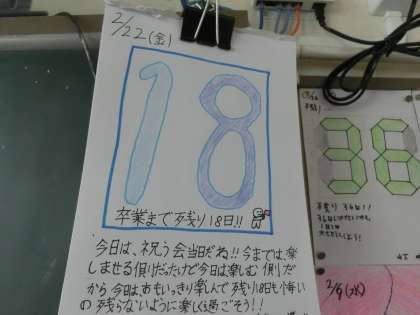 2/22(金)
18
卒業まで残り18日!!
今日は、祝う会当日だね!!今までは、楽
しませる側だったけど今日は楽しむ側だ
から今日はおもいっきり楽しんで残り18日も悔い
の残らないように楽しく過ごそう!!
36
2/9(水)